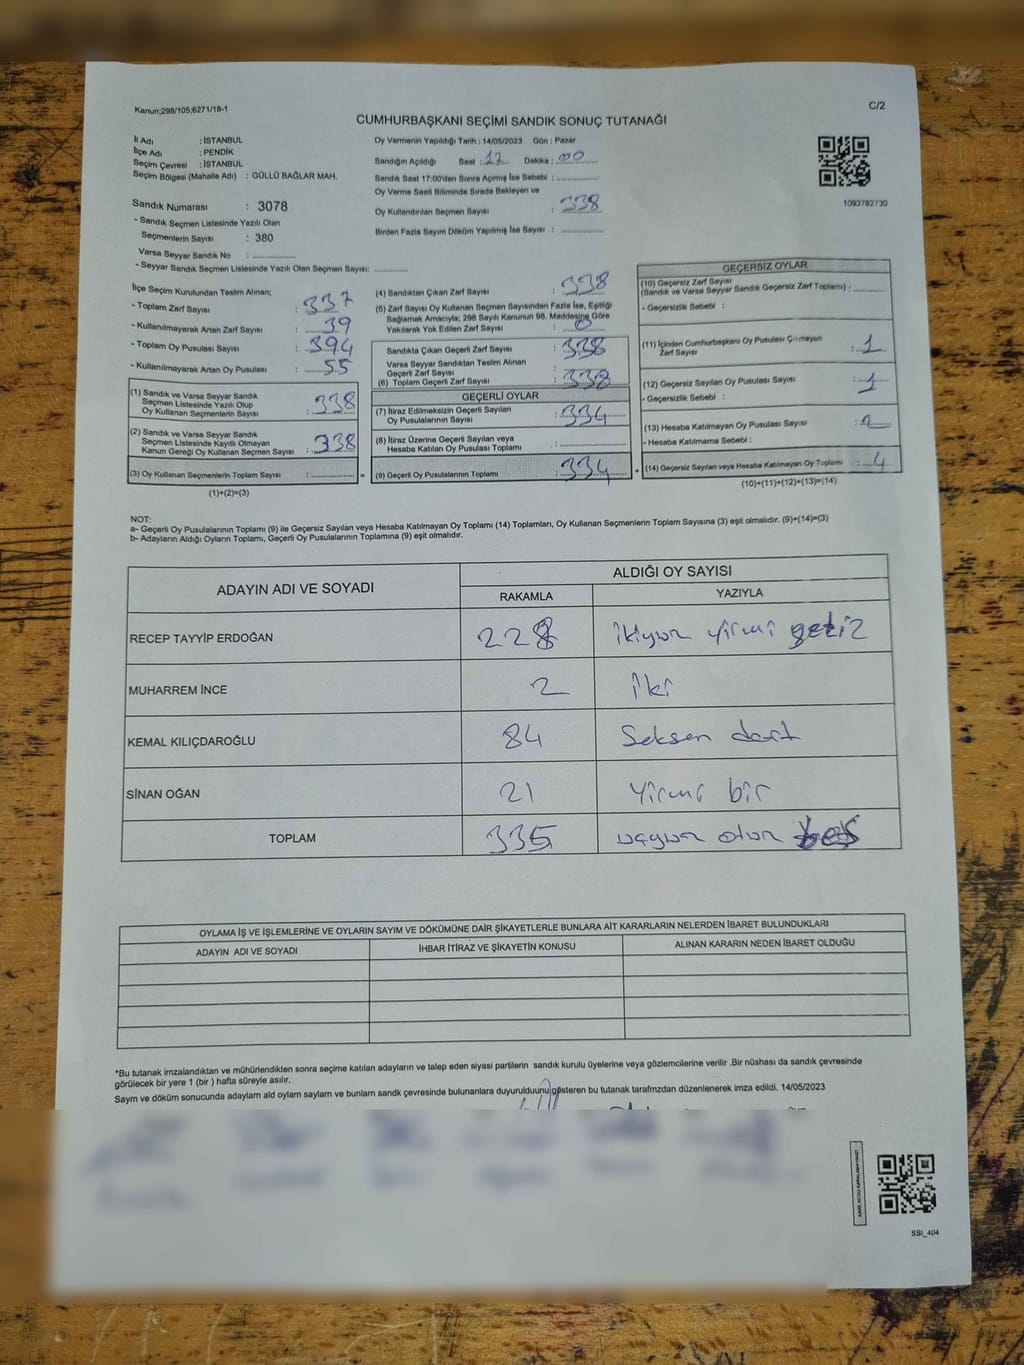 Kanun;298/105;6271/18-1
C/2
CUMHURBAŞKANI SEÇİMİ SANDIK SONUÇ TUTANAĞI
İl Adı : İSTANBUL
İlçe Adı : PENDİK
Seçim Çevresi : İSTANBUL
Seçim Bölgesi (Mahalle Adı) : GÜLLÜ BAĞLAR MAH.
Sandık Numarası : 3078
- Sandık Seçmen Listesinde Yazılı Olan
Seçmenlerin Sayısı : 380
Varsa Seyyar Sandık No : ................
- Seyyar Sandık Seçmen Listesinde Yazılı Olan Seçmen Sayısı: ............
Oy Vermenin Yapıldığı Tarih : 14/05/2023 Gün : Pazar
Sandığın Açıldığı Saat : 17 Dakika : 00
Sandık Saat 17:00'den Sonra Açımış İse Sebebi : ...............
Oy Verme Saati Bitiminde Sırada Bekleyen ve
Oy Kullandırılan Seçmen Sayısı : 338
Birden Fazla Sayım Döküm Yapılmış İse Sayısı : ...............
1093782730
İlçe Seçim Kurulundan Teslim Alınan;
- Toplam Zarf Sayısı : 337
- Kullanılmayarak Artan Zarf Sayısı : 39
- Toplam Oy Pusulası Sayısı : 394
- Kullanılmayarak Artan Oy Pusulası : 55
(1) Sandık ve Varsa Seyyar Sandık
Seçmen Listesinde Yazılı Olup
Oy Kullanan Seçmenlerin Sayısı : 338
(2) Sandık ve Varsa Seyyar Sandık
Seçmen Listesinde Kayıtlı Olmayan
Kanun Gereği Oy Kullanan Seçmen Sayısı : 338
(3) Oy Kullanan Seçmenlerin Toplam Sayısı : ............... =
(1)+(2)=(3)
(4) Sandıktan Çıkan Zarf Sayısı : 338
(5) Zarf Sayısı Oy Kullanan Seçmen Sayısından Fazla İse, Eşitliği
Sağlamak Amacıyla; 298 Sayılı Kanunun 98. Maddesine Göre
Yakılarak Yok Edilen Zarf Sayısı : 0
Sandıkta Çıkan Geçerli Zarf Sayısı : 338
Varsa Seyyar Sandıktan Teslim Alınan
Geçerli Zarf Sayısı :
(6) Toplam Geçerli Zarf Sayısı : 338
GEÇERLİ OYLAR
(7) İtiraz Edilmeksizin Geçerli Sayılan
Oy Pusulasının Sayısı : 334
(8) İtiraz Üzerine Geçerli Sayılan veya
Hesaba Katılan Oy Pusulası Toplamı : ...............
(9) Geçerli Oy Pusulalarının Toplamı : 334 +
GEÇERSİZ OYLAR
(10) Geçersiz Zarf Sayısı
(Sandık ve Varsa Seyyar Sandık Geçersiz Zarf Toplamı) : .........
- Geçersizlik Sebebi :
(11) İçinden Cumhurbaşkanı Oy Pusulası Çıkmayan
Zarf Sayısı : 1
(12) Geçersiz Sayılan Oy Pusulası Sayısı : 1
- Geçersizlik Sebebi :
(13) Hesaba Katılmayan Oy Pusulası Sayısı : 2
- Hesaba Katılmama Sebebi :
(14) Geçersiz Sayılan veya Hesaba Katılmayan Oy Toplamı : 4
(10)+(11)+(12)+(13)=(14)
NOT:
a- Geçerli Oy Pusulalarının Toplamı (9) ile Geçersiz Sayılan veya Hesaba Katılmayan Oy Toplamı (14) Toplamları, Oy Kullanan Seçmenlerin Toplam Sayısına (3) eşit olmalıdır. (9)+(14)=(3)
b- Adayların Aldığı Oyların Toplamı, Geçerli Oy Pusulalarının Toplamına (9) eşit olmalıdır.
ADAYIN ADI VE SOYADI ALDIĞI OY SAYISI
RAKAMLA YAZIYLA
RECEP TAYYİP ERDOĞAN 228 ikiyüz yirmi sekiz
MUHARREM İNCE 2 iki
KEMAL KILIÇDAROĞLU 84 Seksen dört
SİNAN OĞAN 21 Yirmi bir
TOPLAM 335 üçyüz otuz beş
OYLAMA İŞ VE İŞLEMLERİNE VE OYLARIN SAYIM VE DÖKÜMÜNE DAİR ŞİKAYETLERLE BUNLARA AİT KARARLARIN NELERDEN İBARET BULUNDUKLARI
ADAYIN ADI VE SOYADI İHBAR İTİRAZ VE ŞİKAYETİN KONUSU ALINAN KARARIN NEDEN İBARET OLDUĞU
*Bu tutanak imzalandıktan ve mühürlendikten sonra seçime katılan adayların ve talep eden siyasi partilerin sandık kurulu üyelerine veya gözlemcilerine verilir .Bir nüshası da sandık çevresinde
görülecek bir yere 1 (bir ) hafta süreyle asılır.
Sayım ve döküm sonucunda adayların aldı oyların sayları ve bunların sandk çevresinde bulunanlara duyurulduunu gösteren bu tutanak tarafmzdan düzenlenerek imza edildi. 14/05/2023
SSI_404